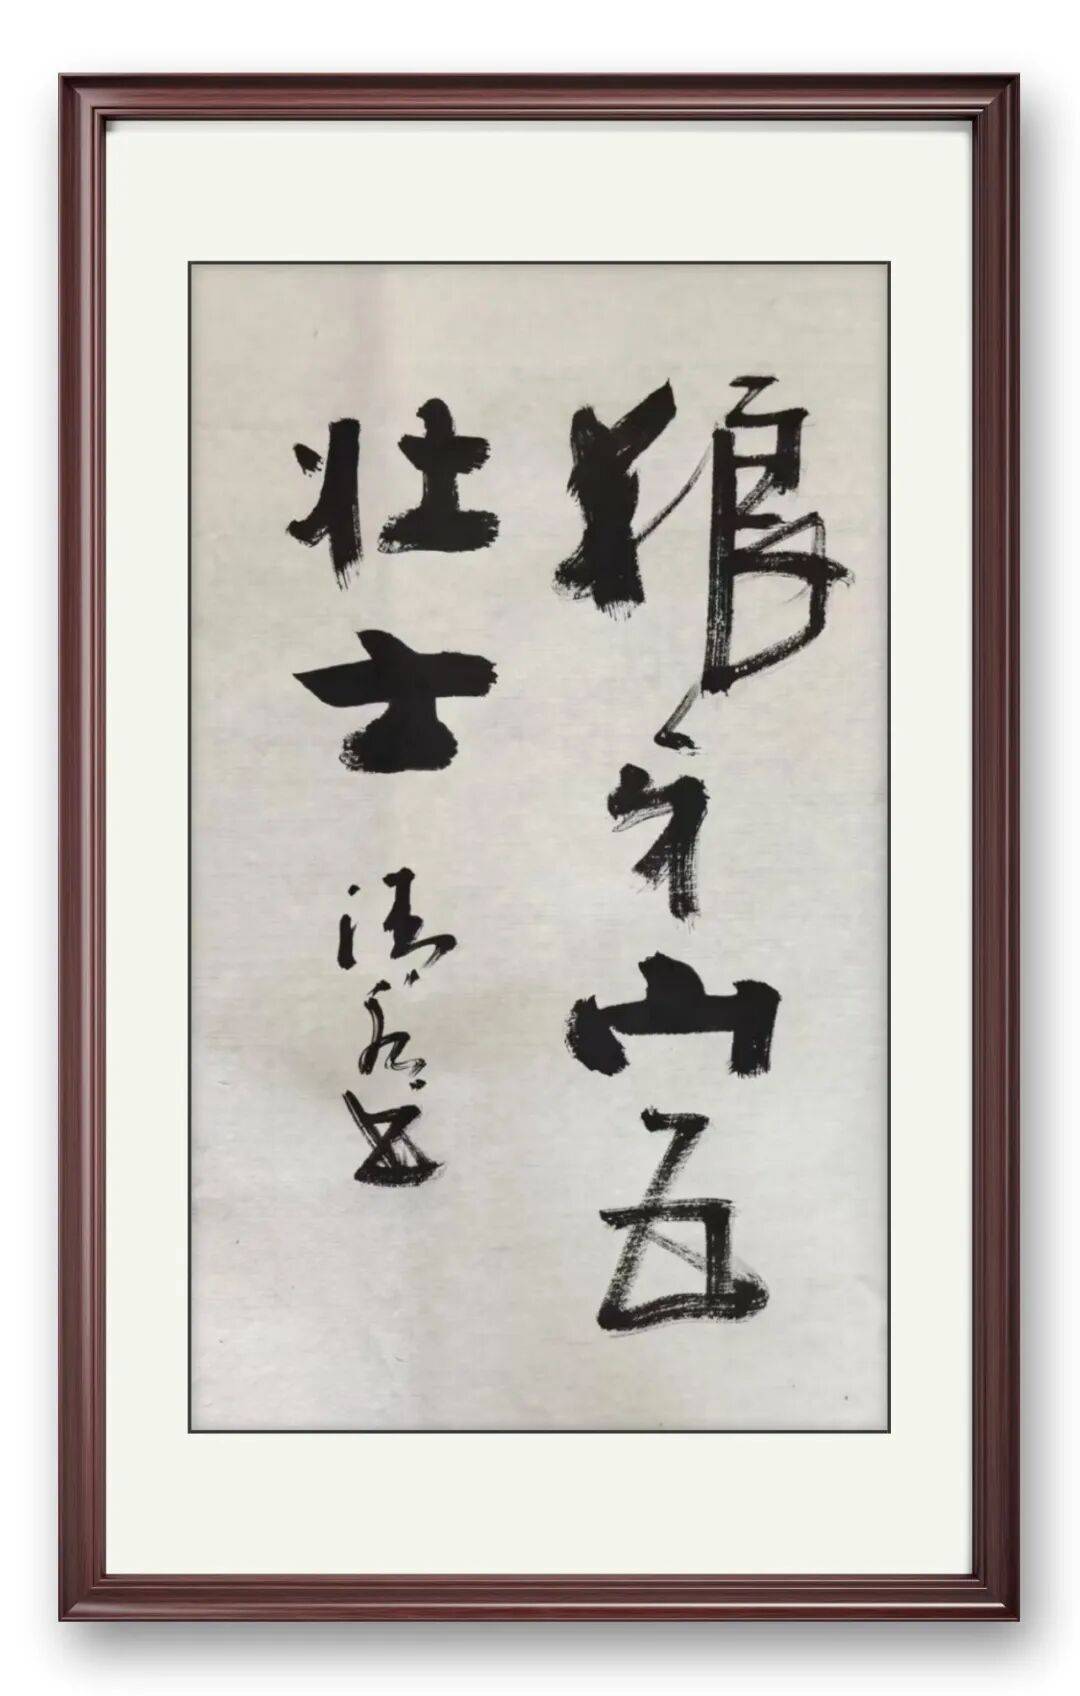 狼牙山五
壮士